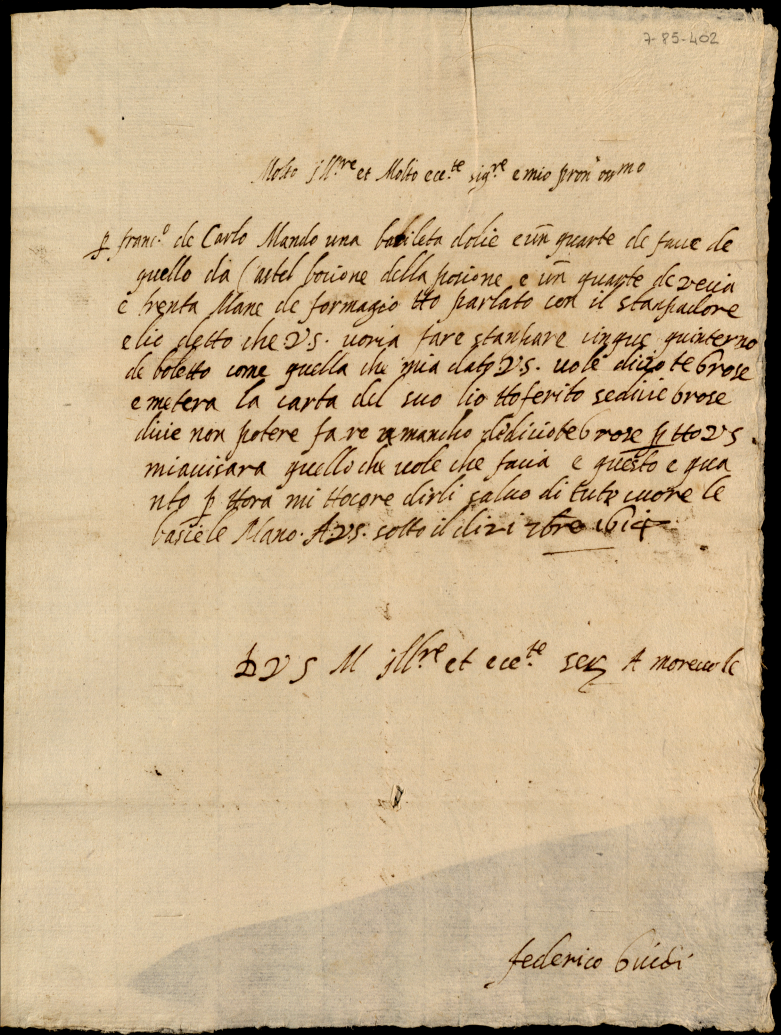 7-85-402
Molto Ill.re et Molto ece.te sig.re e mio pron oss.mo
p franc.o de Carlo Mando una basileta dolie e un quarte de faue de
quello da Castel bocione della posione e un quarte de vecia
e trenta Mane de formagio tto parlato con il stanpadore
e lio detto che V S. uoria fare stanpare cinque quinterno
de boletto come quella che mia dato V S. uole dicioteb rose
e metera la carta del suo lio ttoferito sedicie brose
dicie non potere fare a mancho de dicioteb rose p tto V S.
miauisara quello che uole che facia e questo e qua
nto p ttora mi ttocore dirli saluo di tuto cuore le
bascie le Mano. A. V S. sotto il di 21 7bre 1614
D V S M Ill.re et ece.te ser A moreuole
federico Guidi